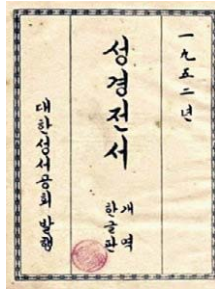 一九五二년
성경전서
개역
한글판
대한성서공회 발행